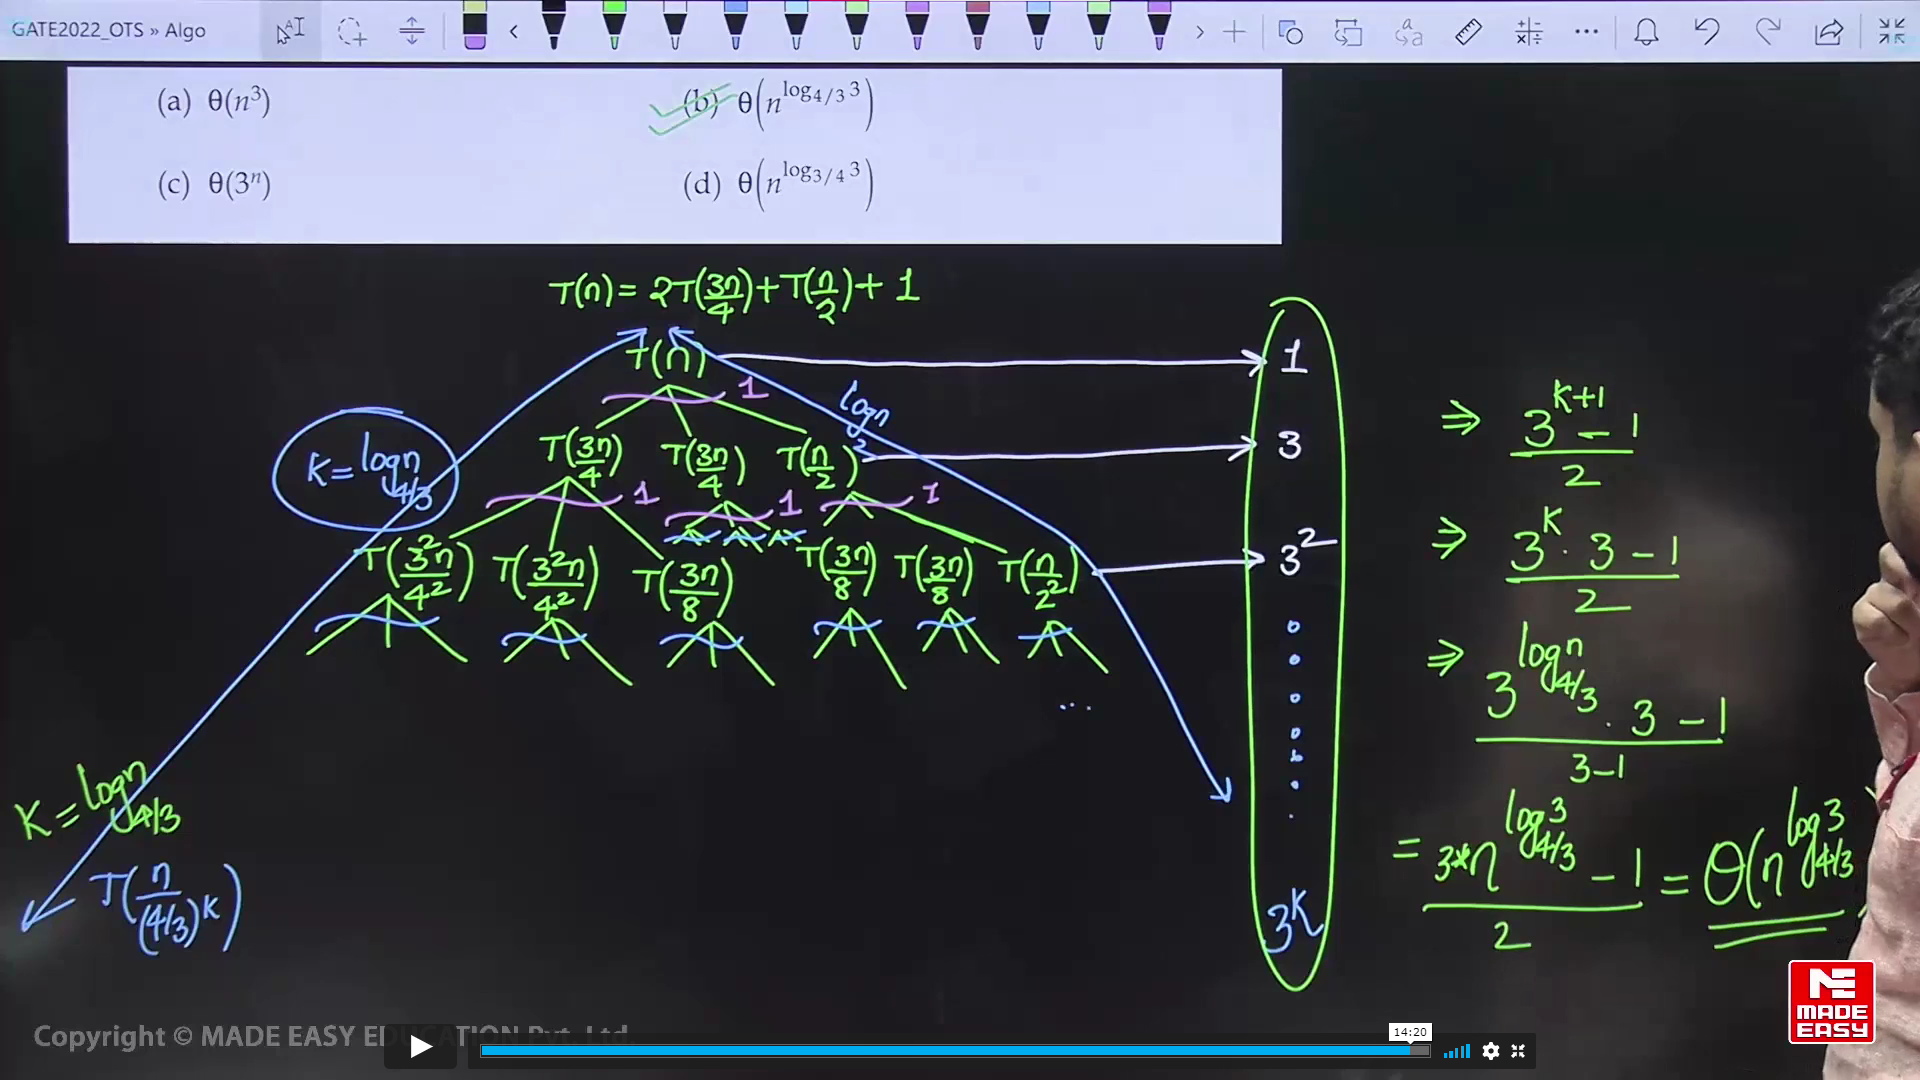 GATE2022_OTS » Algo
(a) θ(n³)
(b) θ(n^{log_{4/3} 3})
(c) θ(3ⁿ)
(d) θ(n^{log_{3/4} 3})
T(n) = 2T(3n/4) + T(n/2) + 1
T(n) 1
log n
2
T(3n/4) T(3n/4) T(n/2)
1 1 1
K = log_{4/3} n
T(3²n/4²) T(3²n/4²) T(3n/8) T(3n/8) T(3n/8) T(n/2²)
...
K = log_{4/3} n
T(n/(4/3)^K)
1
3
3²
3^K
⇒ (3^{K+1} - 1)/2
⇒ (3^K · 3 - 1)/2
⇒ (3^{log_{4/3} n} · 3 - 1)/(3-1)
= (3*n^{log_{4/3} 3} - 1)/2 = θ(n^{log_{4/3} 3})
MADE
EASY
Copyright © MADE EASY EDUCATION Pvt. Ltd.
14:20